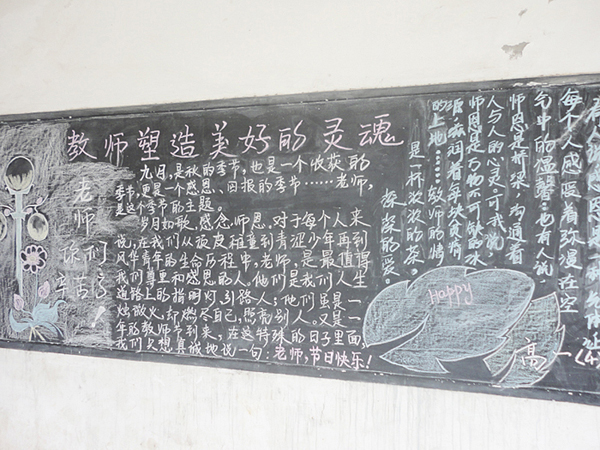 教师塑造美好的灵魂
老师
你们
辛苦了！
九月，是秋的季节，也是一个收获的
季节，更是一个感恩、回报的季节……老师，
是这个季节的主题。
岁月如歌，感念师恩。对于每个人来
说，在我们从孩童到青涩少年再到
风华青年的生命历程中，老师，是最值得
我们尊重和感恩的人。他们是我们人生
道路上的指明灯，引路人；他们虽是一
烛微火，却燃尽自己，照亮别人。又是一
年的教师节到来，在这特殊的日子里面，
我们只想真诚地说一句：老师，节日快乐！
每个人感恩着弥漫在空
气中的温馨，也有人说，
师恩是桥梁，沟通着
人与人的心灵，可我说，
师恩是万物不可缺的水
源，滋润着每块贫瘠
的土地……教师的情
是一杯浓浓的茶，
深深的爱。
Happy
高一(4)